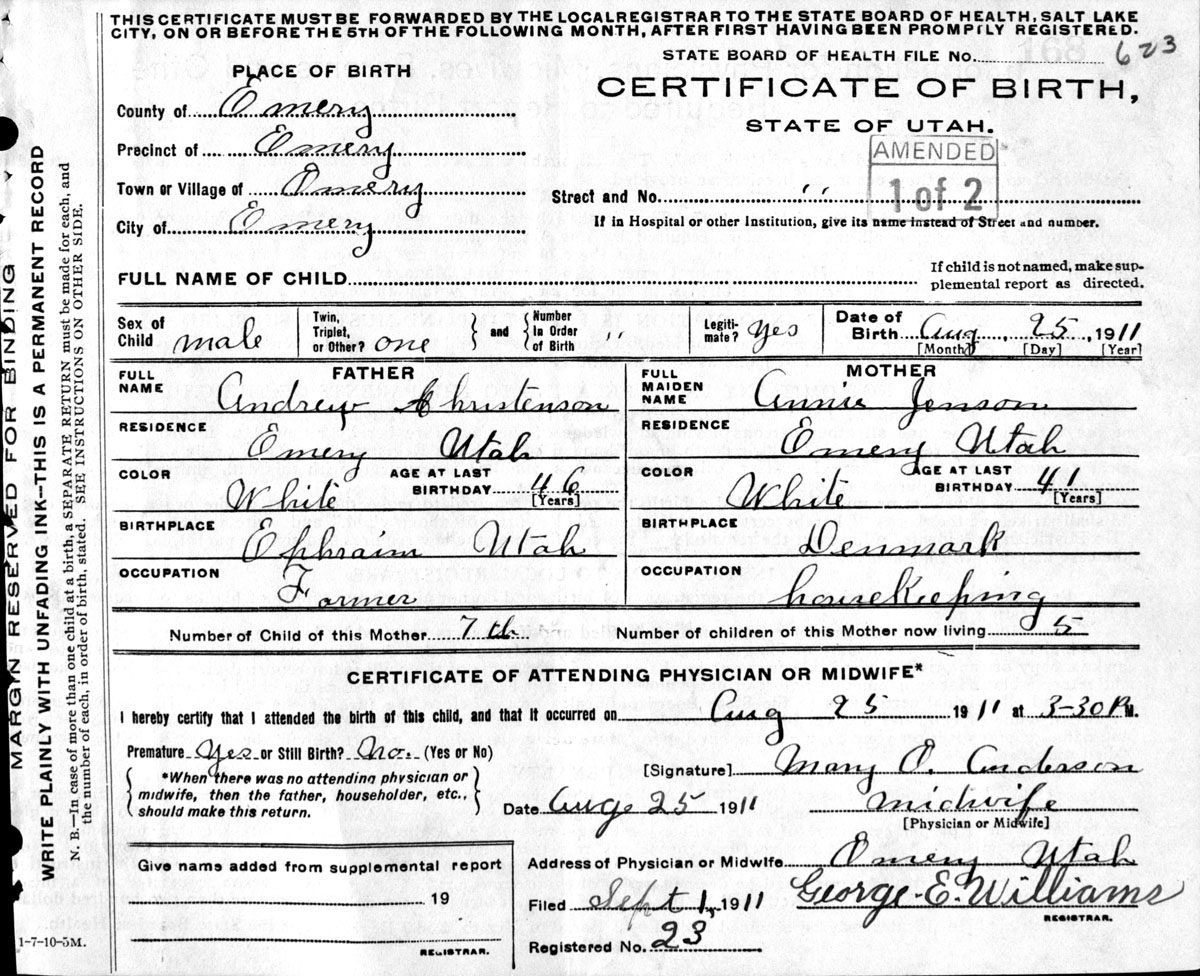 THIS CERTIFICATE MUST BE FORWARDED BY THE LOCAL REGISTRAR TO THE STATE BOARD OF HEALTH, SALT LAKE
CITY, ON OR BEFORE THE 5TH OF THE FOLLOWING MONTH, AFTER FIRST HAVING BEEN PROMPTLY REGISTERED.
STATE BOARD OF HEALTH FILE No. 623
PLACE OF BIRTH
CERTIFICATE OF BIRTH,
STATE OF UTAH.
County of Emery
Precinct of Emery
AMENDED
1 of 2
Town or Village of Emery
Street and No. ''
City of Emery
If in Hospital or other Institution, give its name instead of Street and number.
FULL NAME OF CHILD
If child is not named, make sup-
plemental report as directed.
Sex of Child male
Twin, Triplet, or Other? one
and
Number In Order of Birth ''
Legiti-mate? yes
Date of Birth Aug 25, 1911
[Month] [Day] [Year]
FATHER
FULL NAME
Andrew Christenson
MOTHER
FULL MAIDEN NAME
Annie Jenson
RESIDENCE
Emery Utah
RESIDENCE
Emery Utah
COLOR
White
AGE AT LAST BIRTHDAY 46
[Years]
COLOR
White
AGE AT LAST BIRTHDAY 41
[Years]
BIRTHPLACE
Ephraim Utah
BIRTHPLACE
Denmark
OCCUPATION
Farmer
OCCUPATION
housekeeping
Number of Child of this Mother 7th
Number of children of this Mother now living 5
CERTIFICATE OF ATTENDING PHYSICIAN OR MIDWIFE*
I hereby certify that I attended the birth of this child, and that it occurred on Aug 25 1911 at 3-30 P. M.
Premature Yes or Still Birth? No. (Yes or No)
*When there was no attending physician or
midwife, then the father, householder, etc.,
should make this return.
[Signature] Mary O. Anderson
Date Auge 25 1911
midwife
[Physician or Midwife]
Give name added from supplemental report
19
REGISTRAR.
Address of Physician or Midwife Emery Utah
Filed Sept 1, 1911
George E. Williams
REGISTRAR.
Registered No. 23
1-7-10-5M.
MARGIN RESERVED FOR BINDING
WRITE PLAINLY WITH UNFADING INK--THIS IS A PERMANENT RECORD
N. B.—In case of more than one child at a birth, a SEPARATE RETURN must be made for each, and
the number of each, in order of birth, stated. SEE INSTRUCTIONS ON OTHER SIDE.